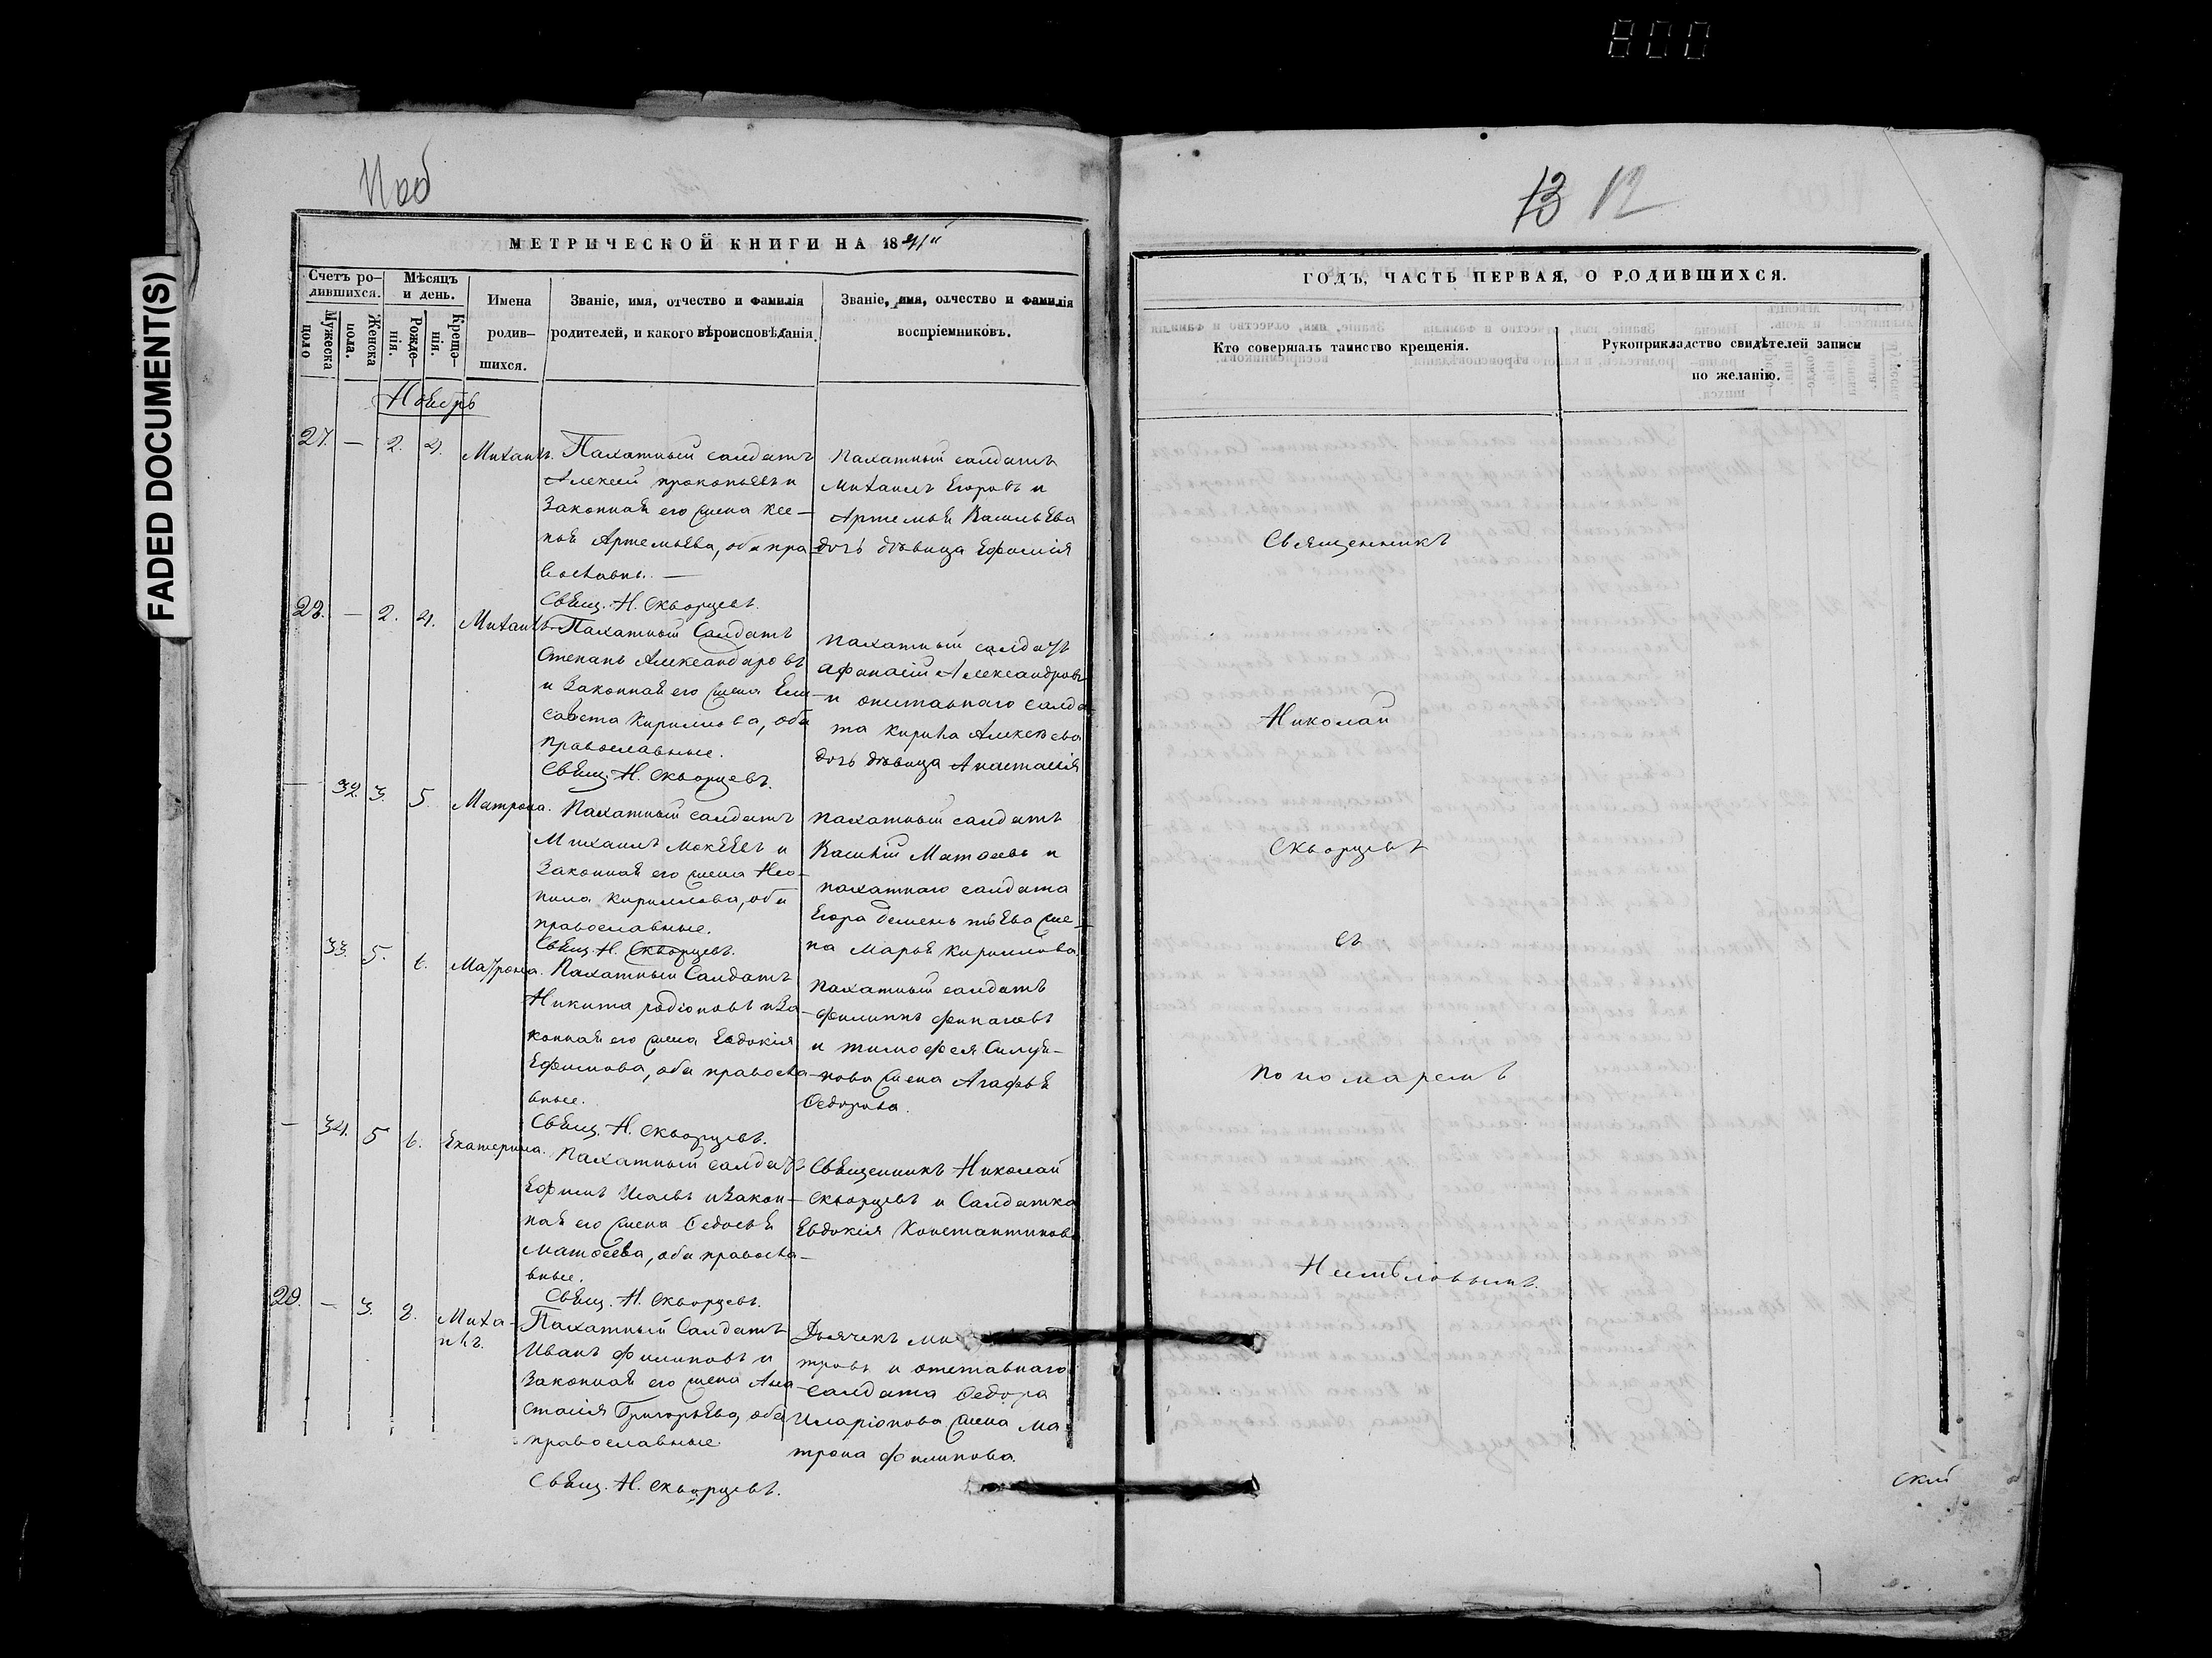 800
FADED DOCUMENT(S)
13 12
МЕТРИЧЕСКОЙ КНИГИ НА 1841й
Счетъ ро-
дившихся.
Мужеска
поло
Женска
пола.
Мѣсяцъ
и день.
Рожде-
нія.
Креще-
нія.
Имена
родив-
шихся.
Званіе, имя, отчество и фамилія
родителей, и какого вѣроисповѣданія.
Званіе, имя, отчество и фамилія
воспріемниковъ.
Ноябрь
27. — 2. 4. Михаилъ.
Пахатный салдатъ
Алексѣй прокопьевъ и
Законная его жена Ксе-
ния Артемьева, оба пра
вославн. —
Свящ. Н. Скворцевъ.
Пахатный салдатъ
Михаилъ Егоровъ и
Артемья Васильева
дочь дѣвица Ефимія
28. — 2. 4. Михаилъ
Пахатный Салдатъ
Степанъ Александровъ
и Законная его жена Ели-
савета Кириллова, оба
православные.
Свящ. Н. Скворцевъ.
пахатный салдатъ
афанасій Александровъ
и отставнаго салда-
та Кирила Алексѣева
дочь дѣвица Анастасія
— 32. 3. 5. Матрона.
Пахатный салдатъ
Михаилъ Мокѣевъ и
Законная его жена Нео-
нила Кириллова, оба
православные.
Свящ. Н. Скворцевъ.
пахатный салдатъ
Василій Матвеевъ и
пахатнаго салдата
Егора Дементьева же-
на Марья Кириллова
33. 5. 6. Матрона.
Пахатный Салдатъ
Никита родіоновъ и За-
конная его жена Евдокія
Ефимова, оба правосла-
вные.
Свящ. Н. Скворцевъ.
Пахатный салдатъ
филиппъ
и тимофея
нова жена Агафья
Ѳедорова.
— 34. 5 6. Екатерина.
Пахатный салдатъ
Ефимъ Исаевъ и Закон-
ная его жена Ѳедосья
Матвеева, оба правосла-
вные.
Свящ. Н. Скворцевъ.
Священникъ Николай
Скворцевъ и Салдатка
Евдокія Константинова
29. — 3. 8. Миха-
илъ.
Пахатный Салдатъ
Иванъ филиповъ и
Законная его жена Ана
стасія Григорьева, оба
православные
Свящ. Н. Скворцевъ.
Дьячекъ
тровъ и отставнаго
салдата Ѳедора
Иларіонова жена Ма-
трона филипова.
ГОДЪ, ЧАСТЬ ПЕРВАЯ, О РОДИВШИХСЯ.
Кто совершалъ таинство крещенія.
Рукоприкладство свидѣтелей записи
по желанію.
Священникъ
Николай
Скворцевъ
съ
пономаремъ
ский